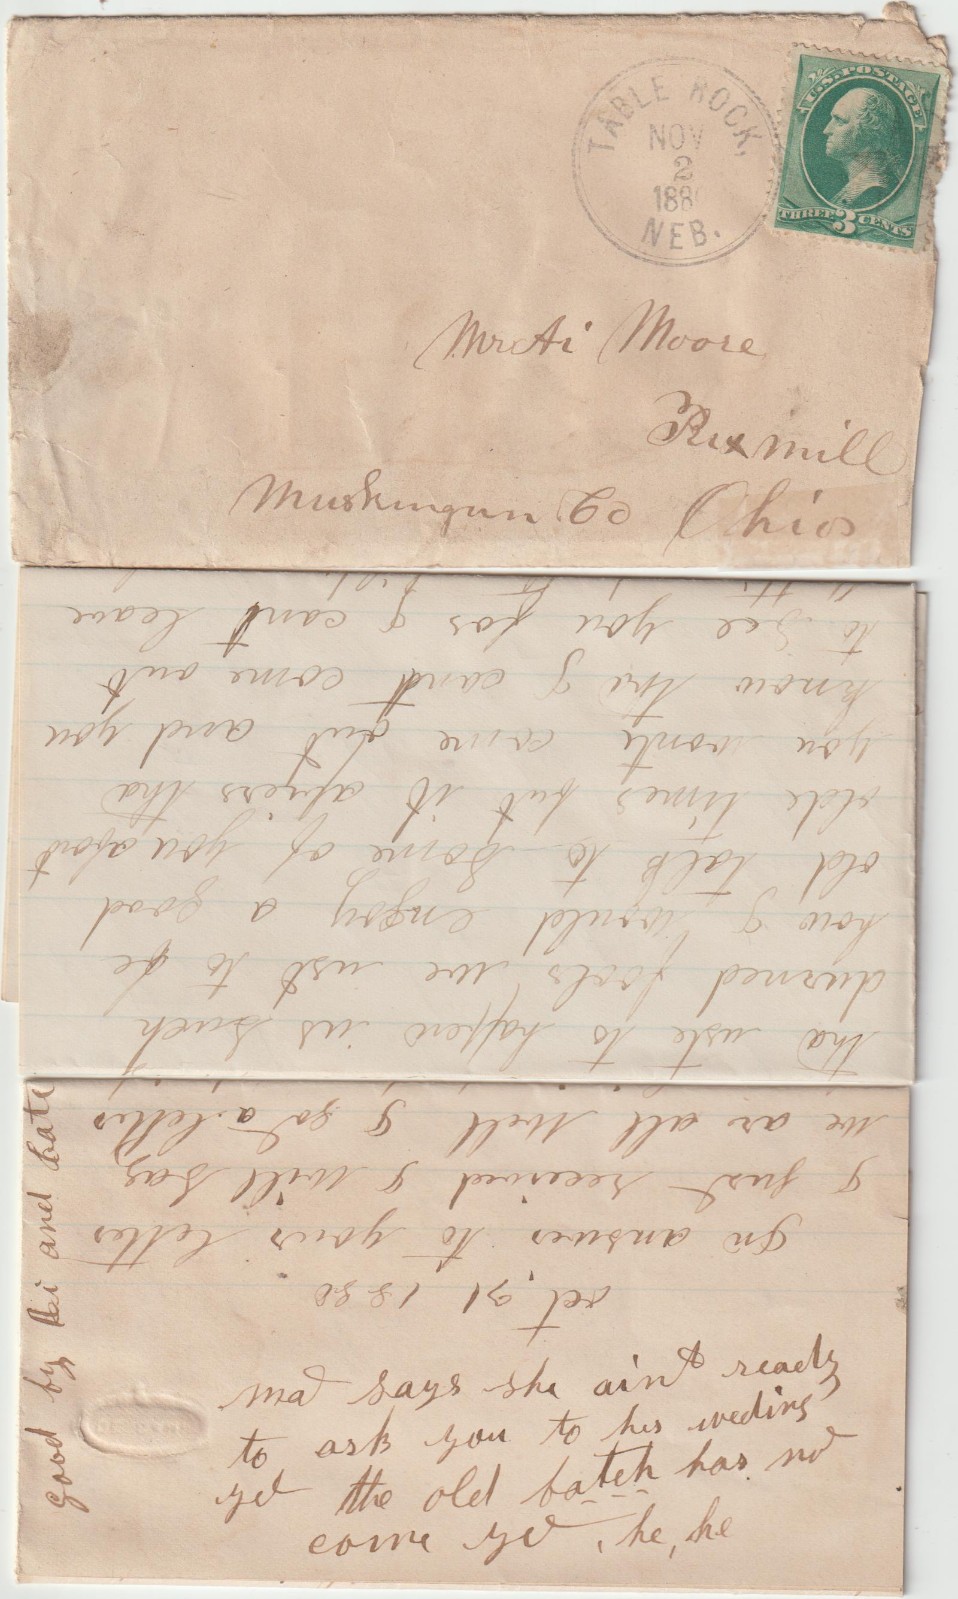 TABLE ROCK,
NOV
2
188
NEB.
U.S. POSTAGE
THREE 3 CENTS
Mr Ai Moore
Rixmill
Muskingum Co Ohio
tha uste to happen us such
durned fools we ust to be
how I would enjoy a good
old talk to some of you about
olde times but it apiers tha
you wont come out and you
know tha I cant come out
to see you for I cant leave
oct, 31 1880
In answer to your letter
I just received I will say
we ar all well I got a letter
ma says she aint ready
to ask you to her weding
yet the old batch has not
come yet, he, he
good by Ai and Cate